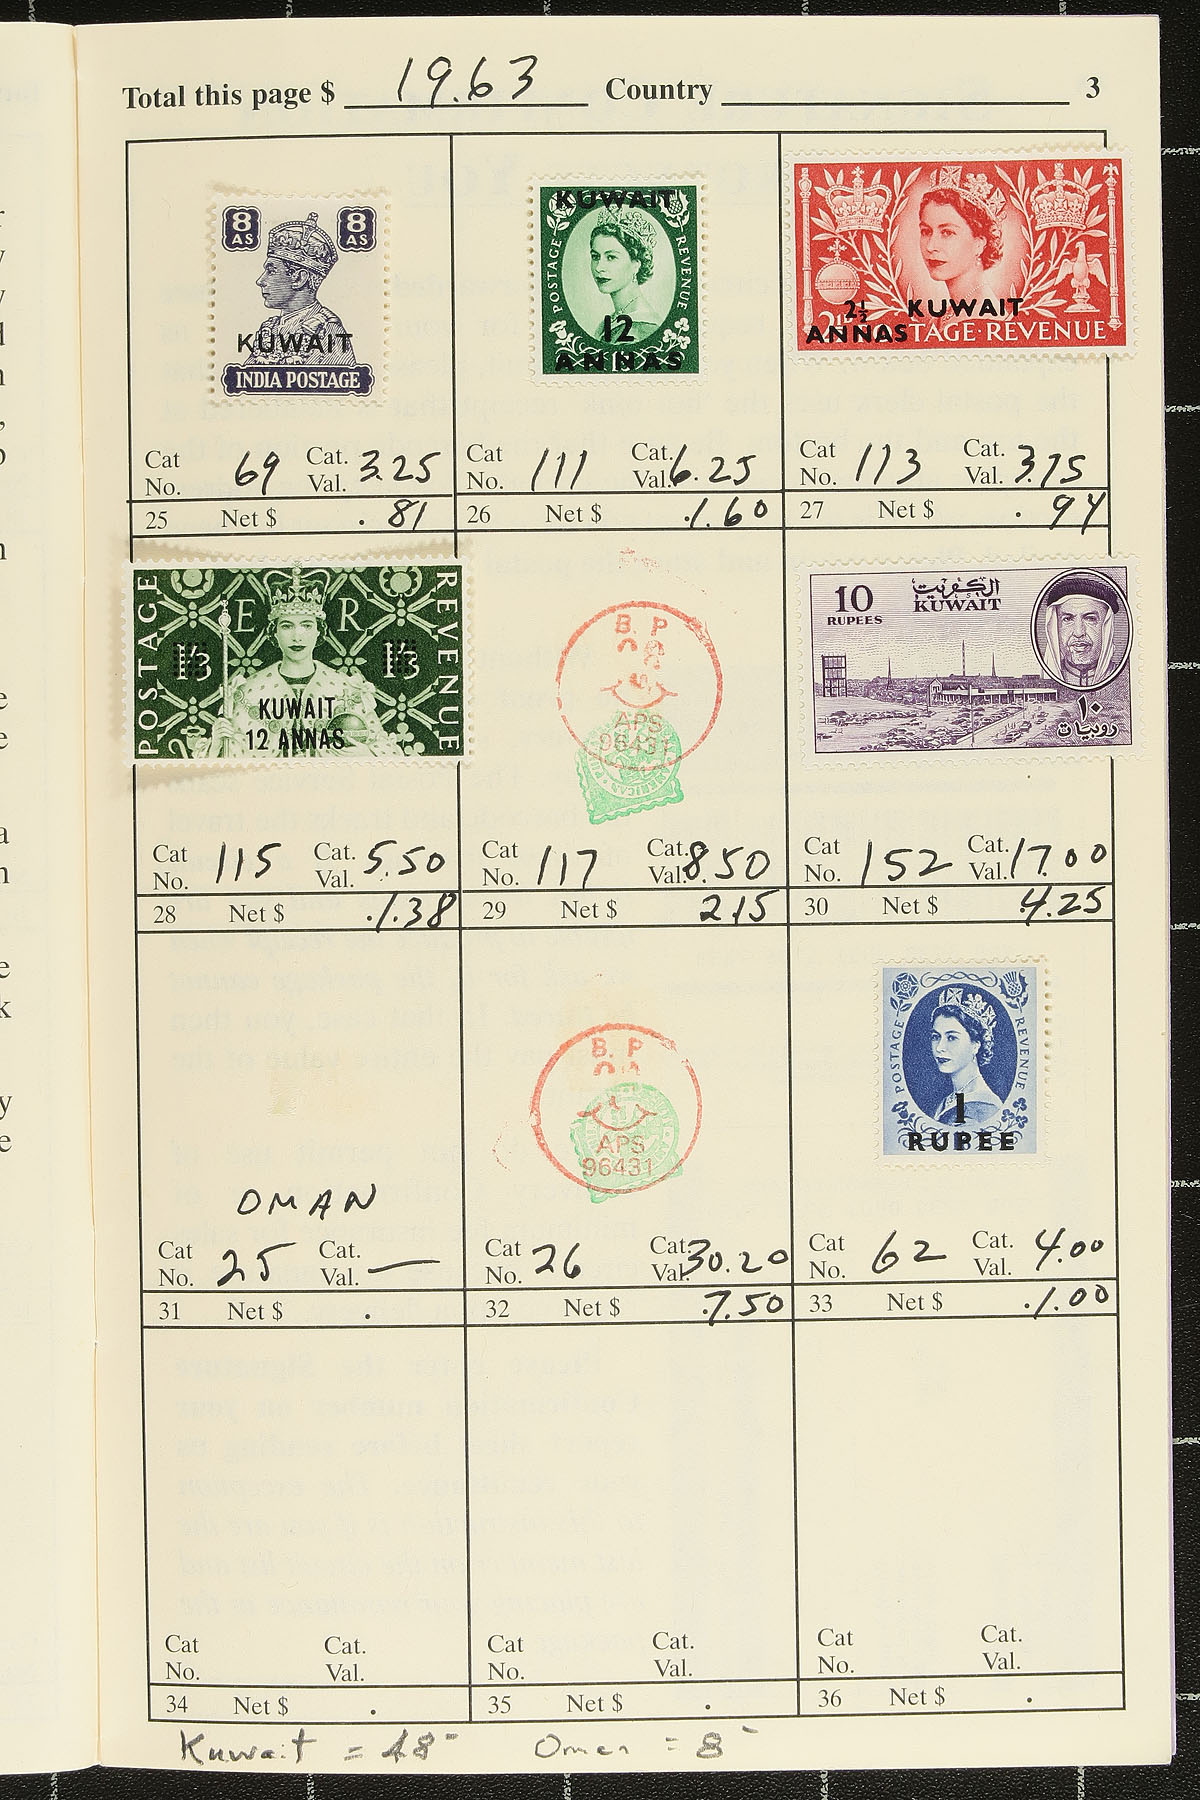 Total this page $ 19.63 Country 3
8 AS 8 AS
KUWAIT
INDIA POSTAGE
KUWAIT
POSTAGE REVENUE
12
ANNAS
2½ KUWAIT
ANNAS TAGE·REVENUE
Cat No. 69 Cat. Val. 3.25
25 Net $ .81
Cat No. 111 Cat. Val. 6.25
26 Net $ 1.60
Cat No. 113 Cat. Val. 3.75
27 Net $ .94
POSTAGE E R REVENUE
1/3 1/3
KUWAIT
12 ANNAS
B. P
APS
96431
AMERICAN
10
RUPEES
الكويت
KUWAIT
١٠
روبيات
Cat No. 115 Cat. Val. 5.50
28 Net $ 1.38
Cat No. 117 Cat. Val. 8.50
29 Net $ 2.15
Cat No. 152 Cat. Val. 17.00
30 Net $ 4.25
OMAN
B. P
APS
96431
POSTAGE REVENUE
1
RUPEE
Cat No. 25 Cat. Val. —
31 Net $ .
Cat No. 26 Cat. Val. 30.20
32 Net $ 7.50
Cat No. 62 Cat. Val. 4.00
33 Net $ 1.00
Cat No. Cat. Val.
34 Net $ .
Cat No. Cat. Val.
35 Net $ .
Cat No. Cat. Val.
36 Net $ .
Kuwait = 48- Oman = 8-